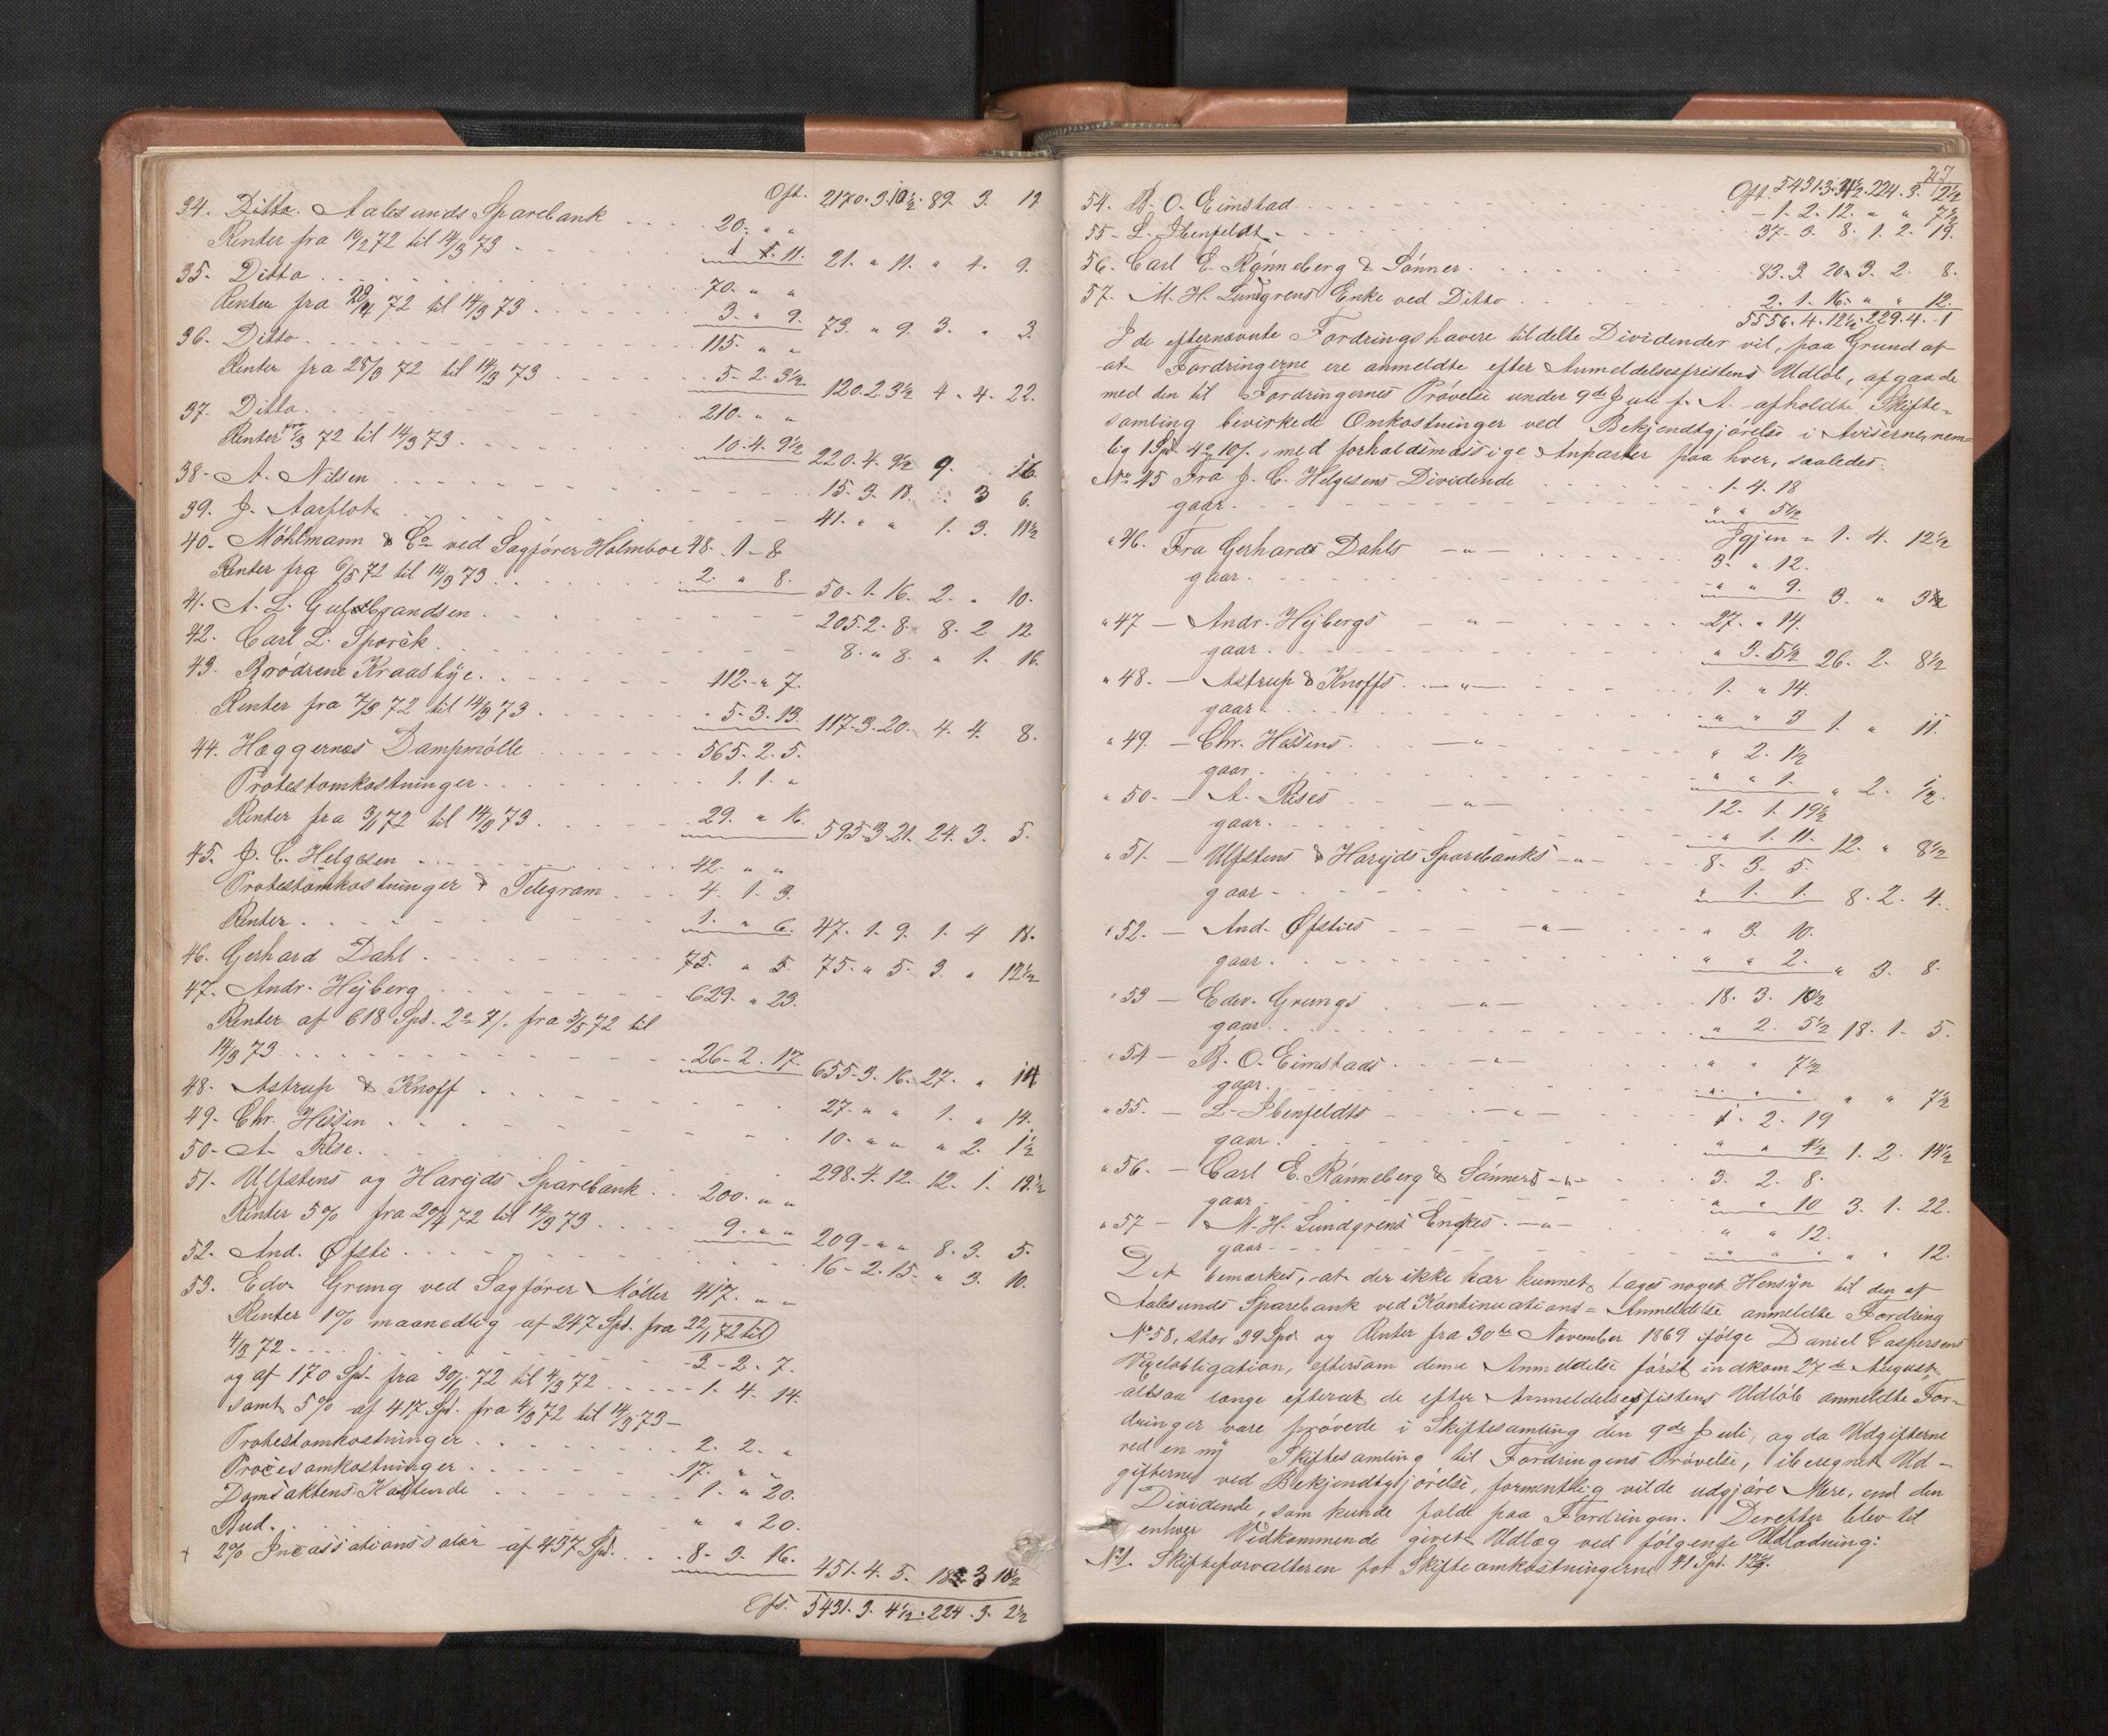 Oft. 2170.3.10½. 89 3. 19
34. Ditto. Aalesunds Sparebank . . . . 20. " "
Renter fra 10/2 72 til 14/3 73 . . 1 . 11. 21. " 11. " 4. 9.
35. Ditto . . . . . 70. " "
Renter fra 28/4 72 til 14/3 73 . . . 3. " 9. 73. " 9. 3. " 3.
36. Ditto . . . . . 115. " "
Renter fra 25/3 72 til 14/3 73 . . . 5. 2. 3½ 120.2.3½ 4. 4. 22.
37. Ditto . . . . . 210. " "
Renter fra /3 72 til 14/3 73 . . . 10. 4. 9½ 220. 4. 9½ 9. 16.
38. A. Nilsen . . . . . 15. 3. 18. " 3 6.
39. J. Aarflot . . . . . 41. " " 1. 3. 11½
40. Möhlmann & Co ved Sagfører Holmboe 48. 1. 8.
Renter fra 6/5 72 til 14/3 73 . . . 2. " 8. 50. 1. 16. 2. " 10.
41. A. L. Gulbrandsen . . . . 205. 2. 8. 8. 2 12.
42. Carl L. Sporck . . . . 8. " 8. " 1. 16.
43. Brödrene Kraasbye . . . . 112. " 7.
Renter fra 7/3 72 til 14/3 73 . . . 5. 3. 13. 117. 3. 20. 4. 4. 8.
44. Hæggernæs Dampmølle . . . 565. 2. 5.
Protestomkostninger . . . . 1. 1. "
Renter fra 3/1 72 til 14/3 73 . . . 29. " 16. 595.3.21. 24. 3. 5.
45. J. C. Helgesen . . . . 42. " "
Protestomkostninger & Telegram . . . 4. 1. 3.
Renter . . . . . 1. " 6. 47. 1. 9. 1. 4 18.
46. Gerhard Dahl . . . . 75. " 5. 75. " 5. 3. " 12½
47. Andr. Hejberg . . . . 629. " 23.
Renter af 618 Spd. 2 o 7 /. fra 5/5 72 til
14/3 73 . . . . . 26. 2. 17. 655. 3. 16. 27. " 14
48. Astrup & Knoff . . . . 27. " " 1. " 14.
49. Chr. Hessen . . . . 10. " " " 2. 1½
50. A. Rise . . . . 298. 4. 12. 12. 1. 19½
51. Ulfstens og Harejds Sparebank . . 200. " "
Renter 5% fra 20/4 72 til 14/3 73 . . . 9. " " 209. " " 8. 3. 5.
52. And. Øfsti . . . . . 16. 2. 15. " 3. 10.
53. Edv. Grung ved Sagfører Møller 417. " "
Renter 1% maanedlig af 247 Spd. fra 22/1 72 til
4/3 72 . . . . . 3. 2. 7.
og af 170 Spd. fra 30/1 72 til 4/3 72 . . . . 1. 4. 14.
samt 5% af 417 Spd. fra 4/3 72 til 14/3 73 —
Protestomkostninger . . . . 2. 2. "
Procesomkostninger . . . . 17. " "
Domsaktens Kostende . . . . 1. " 20.
Bud . . . . . " " 20.
+ 2% Incassationssalær af 437 Spd. . . 8. 3. 16. 451. 4. 5. 18 3 10½
Ofs. 5431. 3. 4½. 224. 3. 2½
27
Oft. 5431.3.4½. 224. 3. 2½
54. B. O. Eimstad . . . . 1. 2. 12. " " 7½
55. L. Ibenfeldt . . . . 37. 3. 8. 1. 2. 19.
56. Carl E. Rønneberg & Sønner . . . . 83. 3. 20. 3. 2. 8.
57. M. H. Lundgrens Enke ved Ditto . . . . 2. 1. 16. " " 12.
5556. 4. 12½. 229. 4. 1
I de efternævnte Fordringshavere tildelte Dividender vil, paa Grund af
at Fordringerne ere anmeldte efter Anmeldelsesfristens Udløb, afgaa de
med den til Fordringernes Prøvelse under 9de Juli f. A. afholdte Skifte=
samling bevirkede Omkostninger ved Bekjendtgjørelse i Aviserne, nem=
lig 1 Spd. 4 o 10 /., med forholdsmæssige Anparter paa hver, saaledes:
No 45 Fra J. C. Helgesens Dividende . . . . 1. 4. 18
gaar . . . . " " 5½
Igjen " 1. 4. 12½
" 46. Fra Gerhard Dahls — " — . . . 3. " 12.
gaar . . . . " " 9. 3. " 3½
" 47 — Andr. Hejbergs — " — . . . 27. " 14.
gaar . . . . " 3. 5½ 26. 2. 8½
" 48. — Astrup & Knoffs — " — . . . 1. " 14.
gaar . . . . " " 3 1. " 11.
" 49. — Chr. Hessens — " — . . . " 2. 1½
gaar . . . . " " 1. " 2. ½.
" 50. — A. Rises — " — . . . 12. 1. 19½
gaar . . . . " 1. 11. 12. " 8½
" 51. — Ulfstens & Harejds Sparebanks — " — 8. 3. 5.
gaar . . . . " 1. 1. 8. 2. 4.
" 52. — And. Øfsties — " — . . . " 3. 10.
gaar . . . . " " 2. " 3. 8.
" 53 — Edv. Grungs — " — . . . 18. 3. 10½
gaar . . . . " 2. 5½ 18. 1. 5.
" 54 — B. O. Eimstads — " — . . . " " 7½
gaar . . . . " " " " " 7½
" 55. — L. Ibenfeldts — " — . . . 1. 2. 19
gaar . . . . " " 4½ 1. 2. 14½
" 56. — Carl E. Rønneberg & Sønners — " — 3. 2. 8.
gaar . . . . " " 10 3. 1. 22.
" 57 — M. H. Lundgrens Enkes — " — . . . " " 12.
gaar . . . . " " " " " 12.
Det bemærkes, at der ikke har kunnet tages noget Hensyn til den af
Aalesunds Sparebank ved Kontinuations=Anmeldelse anmeldte Fordring
No 58, stor 39 Spd. og Renter fra 30te November 1869 ifølge Daniel Caspersens
Vexelobligation, eftersom denne Anmeldelse først indkom 27de August,
altsaa længe efterat de efter Anmeldelsesfristens Udløb anmeldte For=
dringer vare prøvede i Skiftesamling den 9de Juli, og da Udgifterne
ved en ny Skiftesamling til Fordringens Prøvelse, iberegnet Ud=
gifterne ved Bekjendtgjørelse, formentlig vilde udgjøre Mere, end den
Dividende, som kunde falde paa Fordringen. Derefter blev til
enhver Vedkommende givet Udlæg ved følgende Udlodning:
No 1. Skifteforvalteren for Skifteomkostningerne 41 Spd.